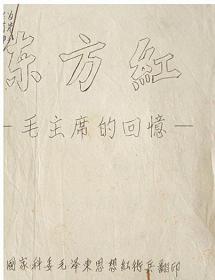 东方紅
—毛主席的回憶—
國家科委毛泽東思想紅衛兵翻印